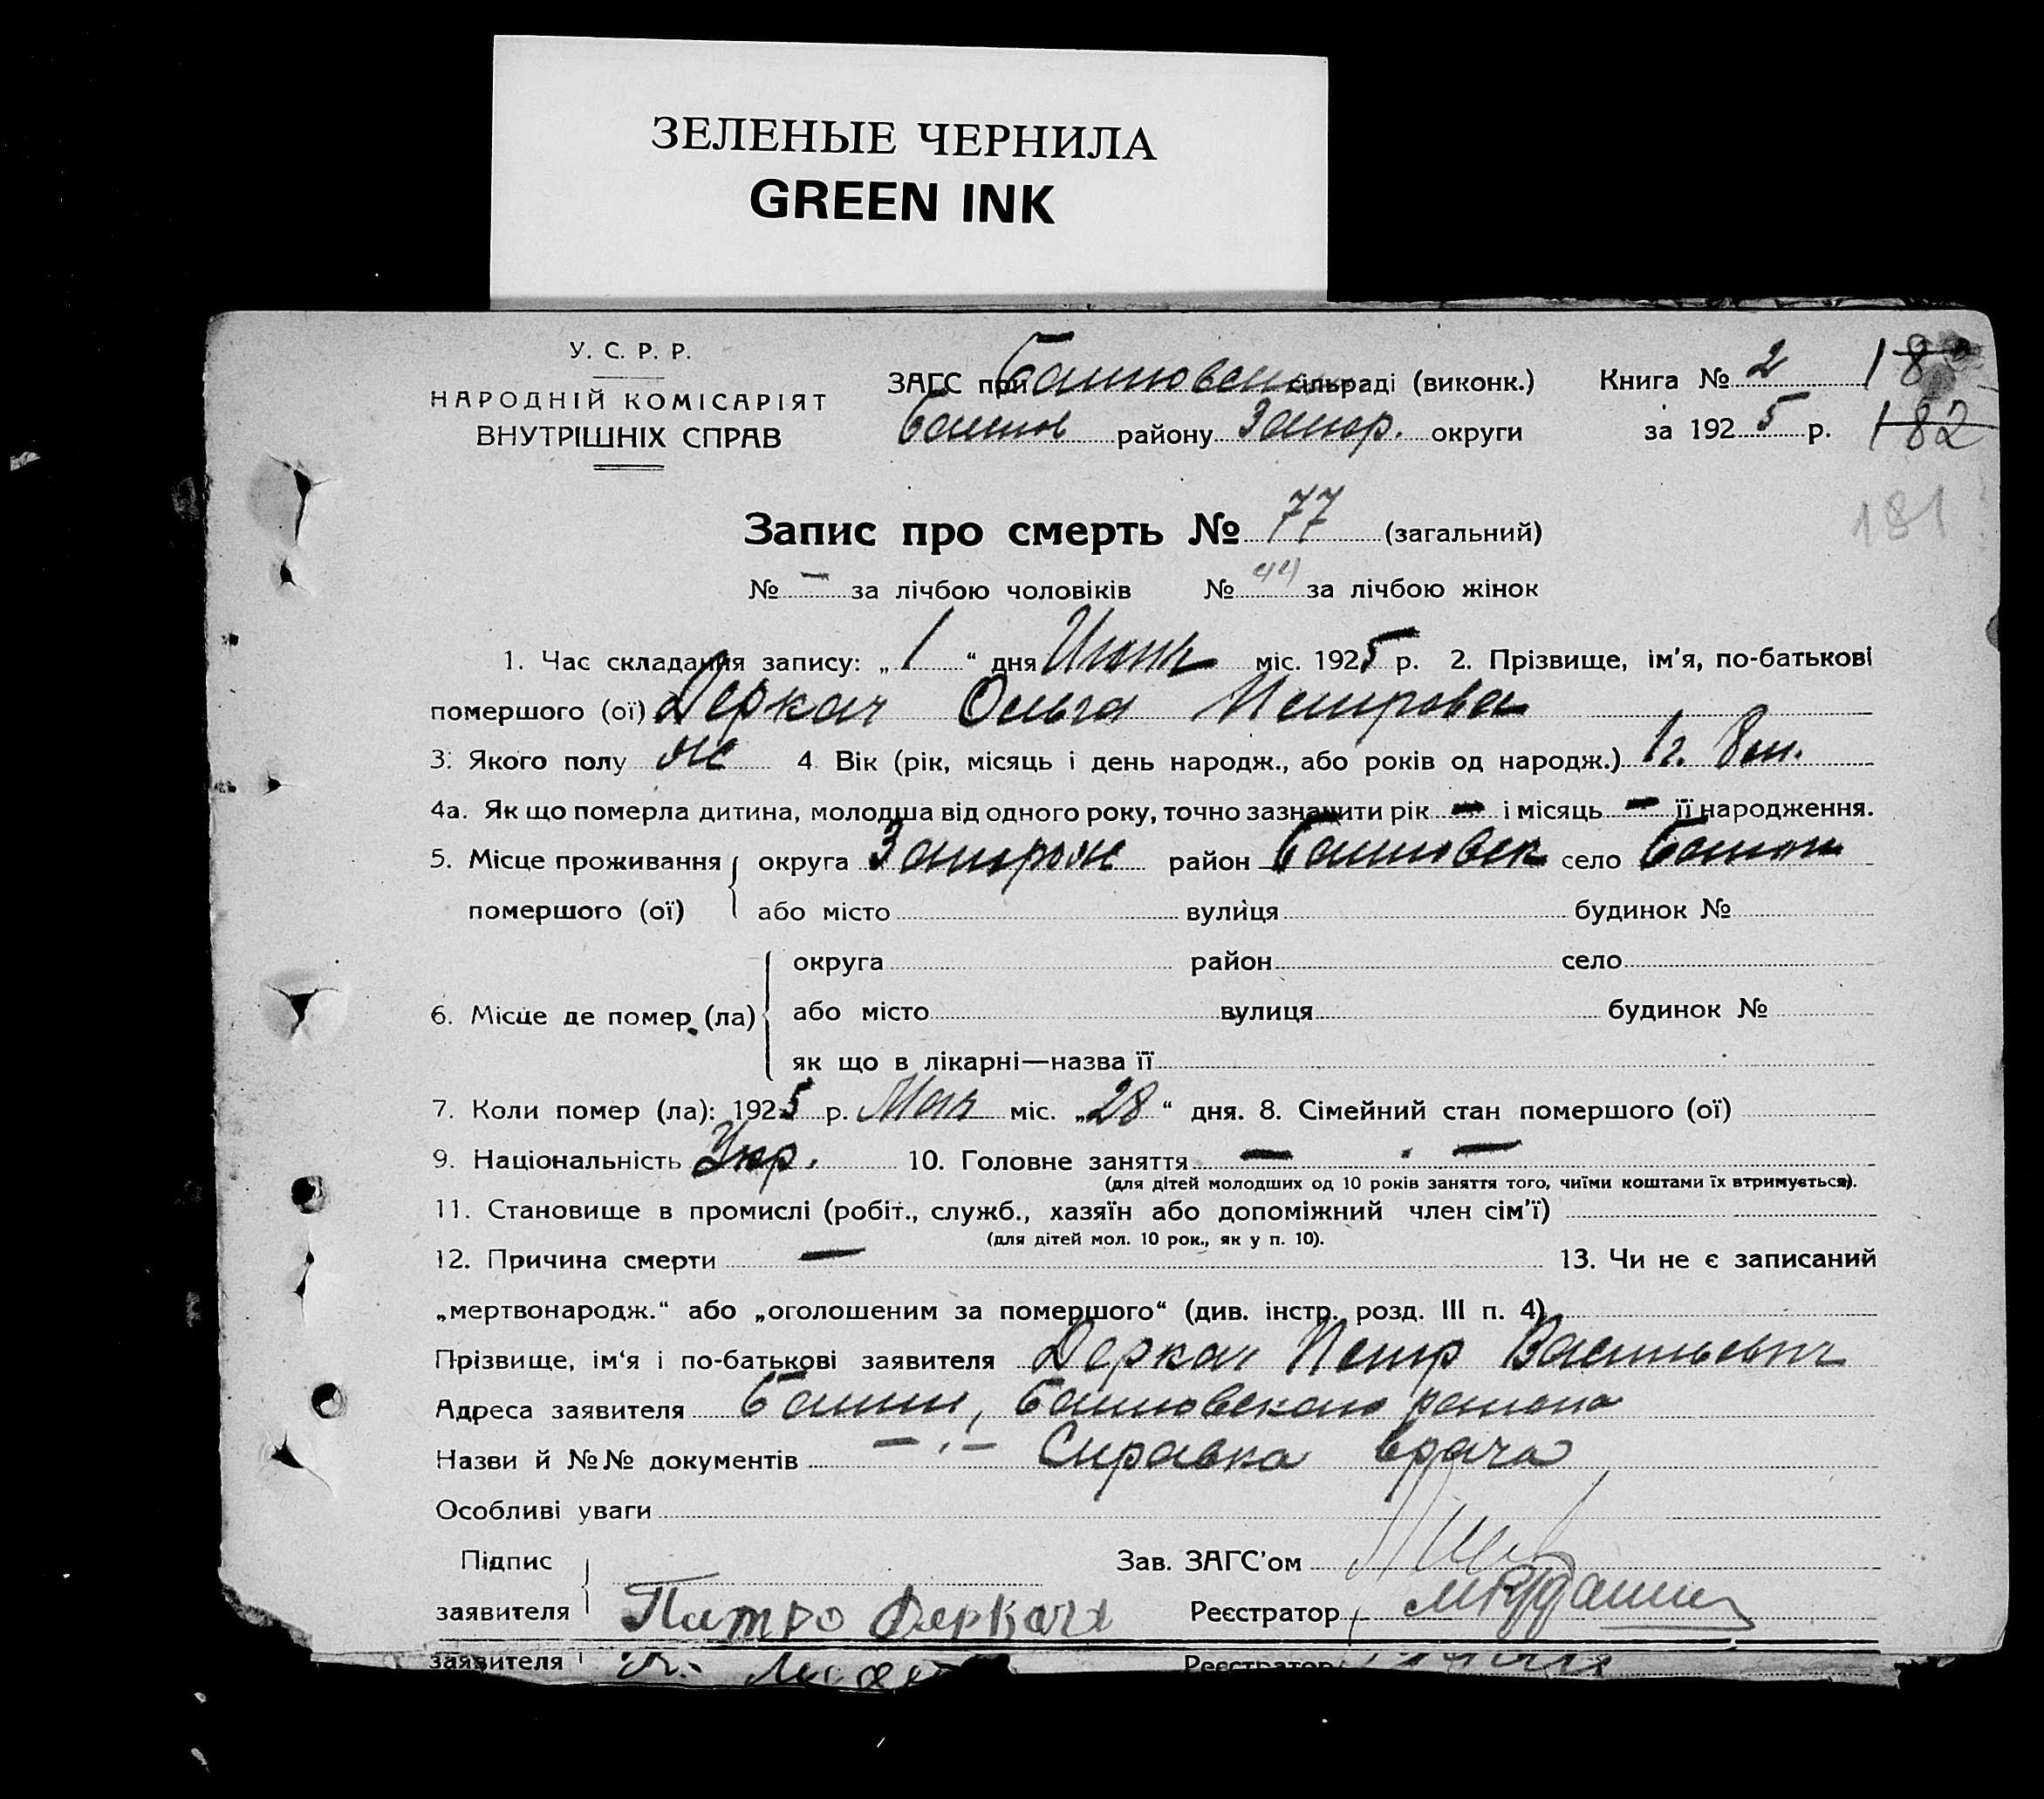 ЗЕЛЕНЫЕ ЧЕРНИЛА
GREEN INK
У. С. Р. Р.
НАРОДНІЙ КОМІСАРІЯТ
ВНУТРІШНІХ СПРАВ
ЗАГС при сільраді (виконк.)
району Запор. округи
Книга № 2
за 1925 р.
182
181
Запис про смерть № 77 (загальний)
№ — за лічбою чоловіків № 44 за лічбою жінок
1. Час складання запису: „1“ дня Июня міс. 1925 р. 2. Прізвище, ім'я, по-батькові
помершого (ої) Деркач Ольга Петрова
3. Якого полу ж 4 Вік (рік, місяць і день народж., або років од народж.) 1 г. 8 м.
4а. Як що померла дитина, молодша від одного року, точно зазначити рік — і місяць — її народження.
5. Місце проживання округа Запорож район село
помершого (ої) або місто вулиця будинок №
округа район село
6. Місце де помер (ла) або місто вулиця будинок №
як що в лікарні—назва її
7. Коли помер (ла): 1925 р. Мая міс. „28“ дня. 8. Сімейний стан помершого (ої)
9. Національність Укр. 10. Головне заняття — —
(для дітей молодших од 10 років заняття того, чиїми коштами їх втримується).
11. Становище в промислі (робіт., служб., хазяїн або допоміжний член сім'ї)
(для дітей мол. 10 рок., як у п. 10).
12. Причина смерти — 13. Чи не є записаний
„мертвонародж.“ або „оголошеним за помершого“ (див. інстр. розд. III п. 4)
Прізвище, ім'я і по-батькові заявителя Деркач Петр Васильевич
Адреса заявителя района
Назви й №№ документів Справка врача
Особливі уваги
Підпис
Зав. ЗАГС'ом
заявителя Патро Деркач
Реєстратор
заявителя
Реєстратор